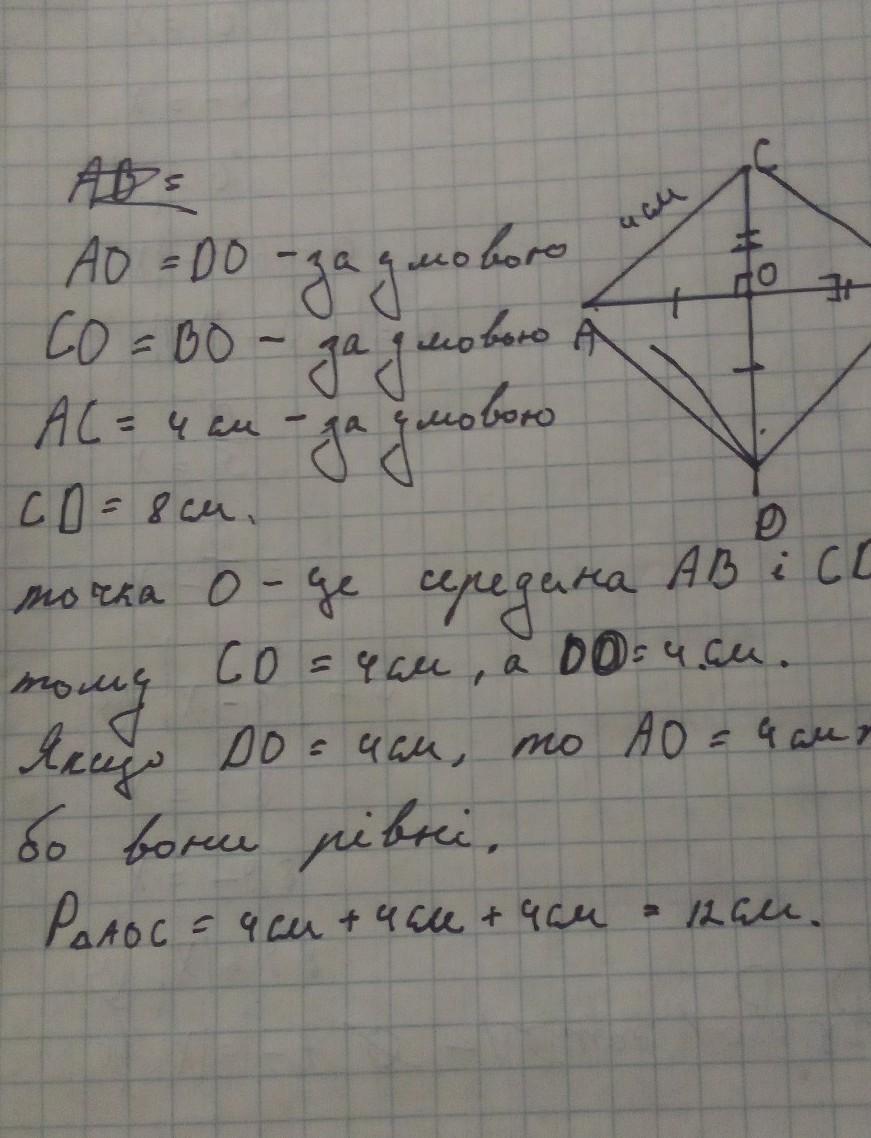 AB =
AO = DO - за умовою
CO = BO - за умовою
AC = 4 см - за умовою
CD = 8 см.
точка O - це середина AB і CD
тому CO = 4 см, а DO = 4 см.
Якщо DO = 4 см, то AO = 4 см
бо вони рівні.
P△AOC = 4 см + 4 см + 4 см = 12 см.
C
4 см
O
A
D